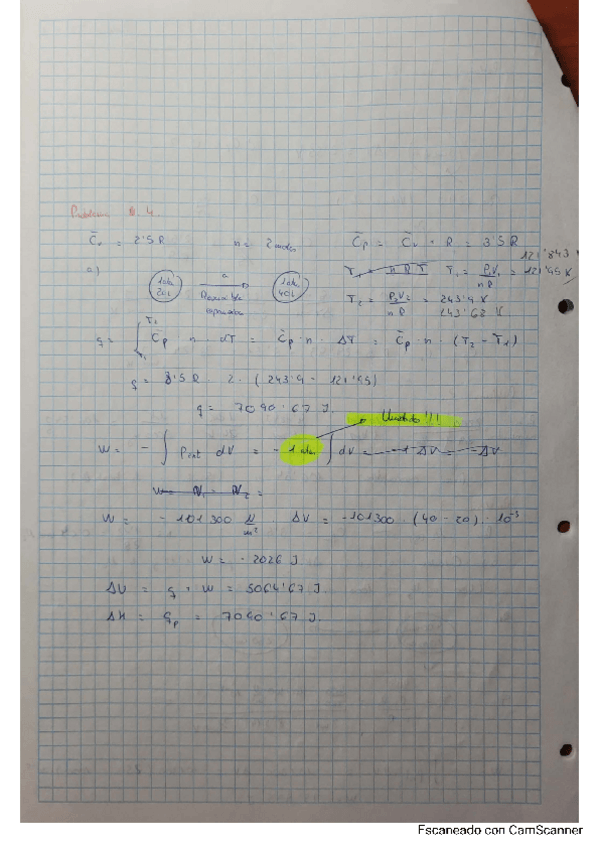 Problema 2.4.
C̄v = 2'5 R    n = 2 moles    C̄p = C̄v + R = 3'5 R
121'843
a) 1 atm 20L → a Reversible expansion 1 atm 40L    T1 = n R T    T1 = P1V1 / nR = 121'95 K
T2 = P2V2 / nR = 243'9 K
243'68 K
q = ∫ T1 T2 C̄p · n · dT = C̄p · n · ΔT = C̄p · n · (T2 - T1)
q = 3'5 R · 2 · (243'9 - 121'95)
q = 7090'67 J.
Unidades!!!
W = - ∫ Pext dV = - 1 atm ∫ dV = - 1 ΔV = - ΔV
V1 - V2 =
W = - 101300 N/m² ΔV = -101300 · (40 - 20) · 10⁻³
W = - 2026 J
ΔU = q + W = 5064'67 J.
ΔH = qp = 7090'67 J.
Escaneado con CamScanner